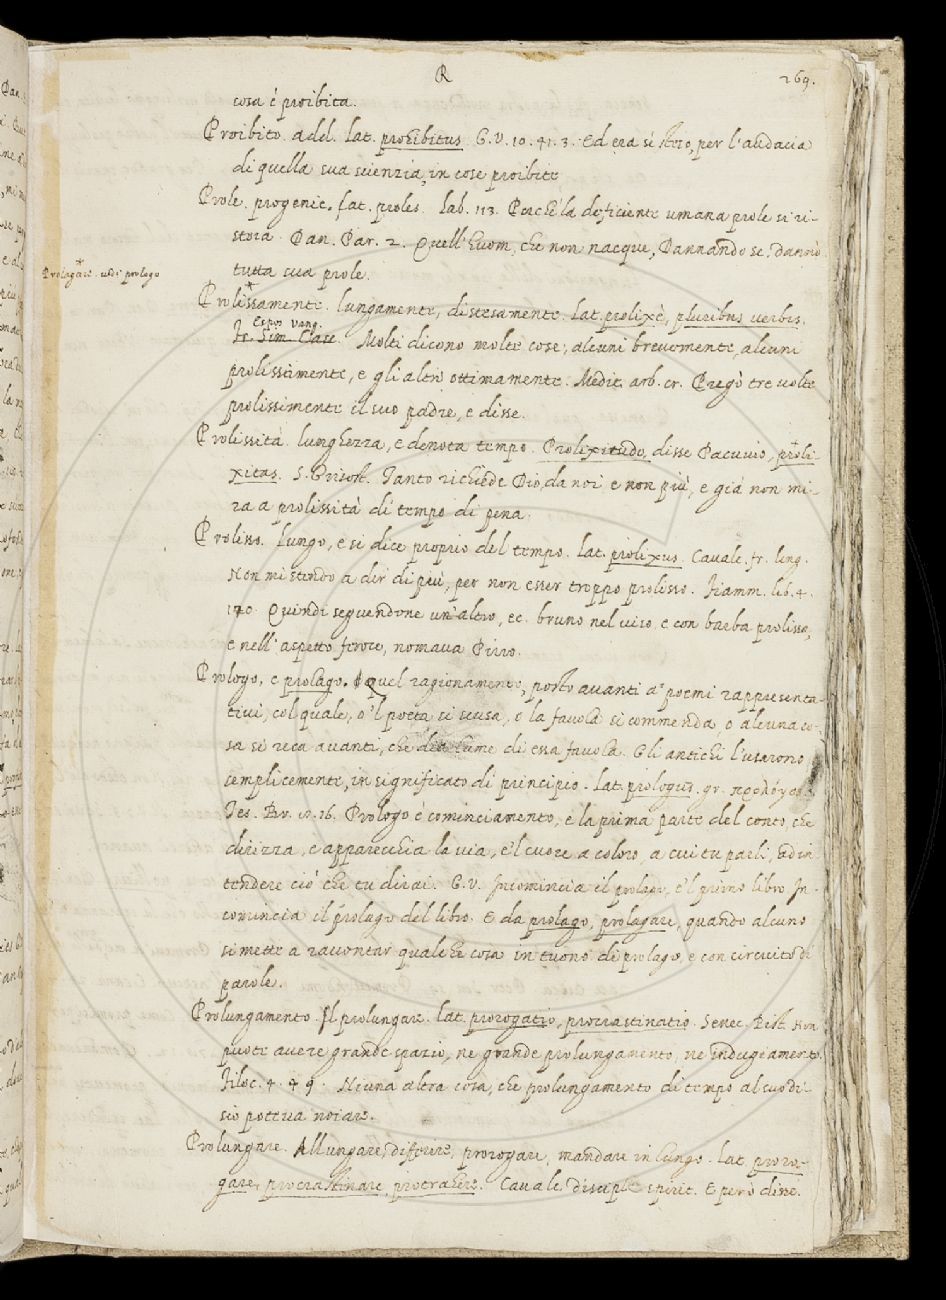 R
269.
cosa è proibita.
Proibito. add. lat. prohibitus. G.V. 10. 41. 3. Ed era sì stoso, per l'audacia
di quella sua scienzia, in cose proibite
Prole. progenie. lat. proles. Lab. 113. Perchè la deficiente umana prole si ri-
stora. Dan. Par. 2. Quell'huom, che non nacque, Dannando se, dannò
tutta sua prole.
Prolagare. vedi prolago
Prolissamente. lungamente, distesamente. lat. prolixè, pluribus verbis.
Espos. Vang.
Fr. Sim. Casc. Molti dicono molte cose, alcuni brevemente, alcuni
prolissimente, e gli altri ottimamente. Medit. arb. cr. Pregò tre volte
prolissimente il suo padre, e disse.
Prolissità. lunghezza, e denota tempo. Prolixitudo, disse Pacuvio, proli-
xitas. S. Grisost. Tanto richiede Dio, da noi e non più, e già non mi-
ra a prolissità di tempo di pena.
Prolisso. Lungo, e si dice proprio del tempo. Lat. prolixus. Cavalc. fr. ling.
Non mi stendo a dir di più, per non esser troppo prolisso. Fiamm. lib. 4.
170. Quindi seguendone un'altro, ec. bruno nel viso e con barba prolissa,
e nell'aspetto feroce, nomava Pirro.
Prologo, e prolago. Quel ragionamento, posto avanti a' poemi rappresenta-
tivi, col quale, o 'l poeta si scusa, o la favola si commenda, o alcuna co-
sa si reca avanti, che dia lume di essa favola. Gli antichi l'usarono
semplicemente, in significato di principio. Lat. prologus. gr. προλόγος.
Tes. Br. 17. 16. Prologo è cominciamento, e la prima parte del conto, che
dirizza, e apparecchia la via, e 'l cuore a coloro, a cui tu parli, ad in-
tendere ciò che tu dirai. G.V. Incomincia il prolago, e 'l primo libro. In-
comincia il prolago del libro. E da prolago, prolagare, quando alcuno
si mette a raccontar qualche cosa in tuono di prolago, e con circuito di
parole.
Prolungamento. Il prolungare. lat. prorogatio, procrastinatio. Senec. Pist. Non
puote avere grande spazio, ne grande prolungamento, ne indugiamento.
Filoc. 4. 49. Niuna altra cosa, che prolungamento di tempo al suo di-
sio potteva noiare.
Prolungare. Allungare, differire, prorogare, mandare in lungo. lat. proro-
gare, procrastinare, protrahere. Cavalc. discipl. spirit. E però disse.